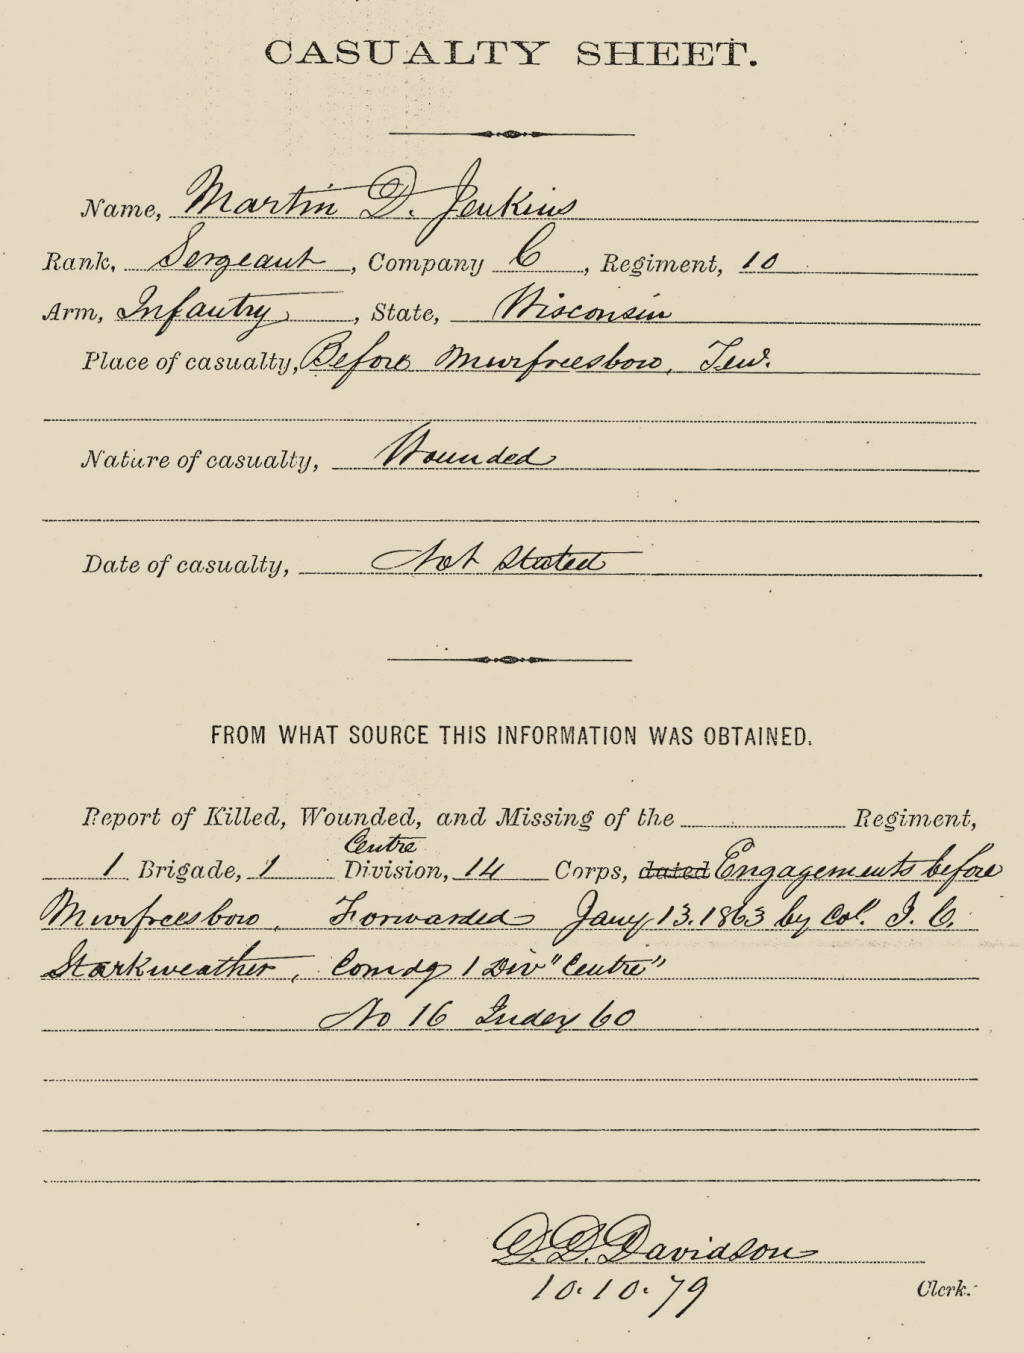 CASUALTY SHEET.
Name, Martin D. Jenkins
Rank, Sergeant, Company C, Regiment, 10
Arm, Infantry, State, Wisconsin
Place of casualty, Before Murfreesboro, Ten.
Nature of casualty, Wounded
Date of casualty, Not Stated
FROM WHAT SOURCE THIS INFORMATION WAS OBTAINED.
Report of Killed, Wounded, and Missing of the Regiment,
Centre
1 Brigade, 1 Division, 14 Corps, dated Engagements before
Murfreesboro, Forwarded Jany 13. 1863 by Col. J. C.
Starkweather, Comdg 1 Div "Centre"
No 16 Index 60
D. D. Davidson
10.10.79 Clerk.